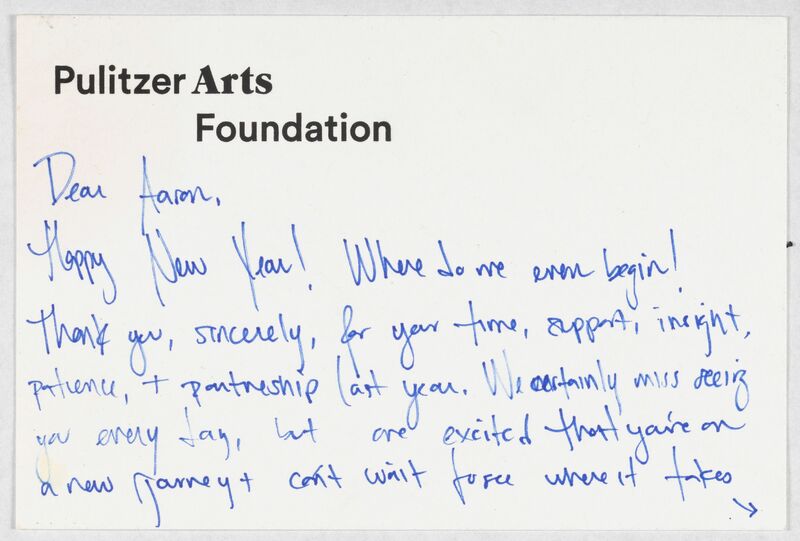 Pulitzer Arts
Foundation
Dear Aaron,
Happy New Year! Where do we even begin!
Thank you, sincerely, for your time, support, insight,
patience, + partnership last year. We certainly miss seeing
you every day, but are excited that you're on
a new journey + can't wait to see where it takes
↘